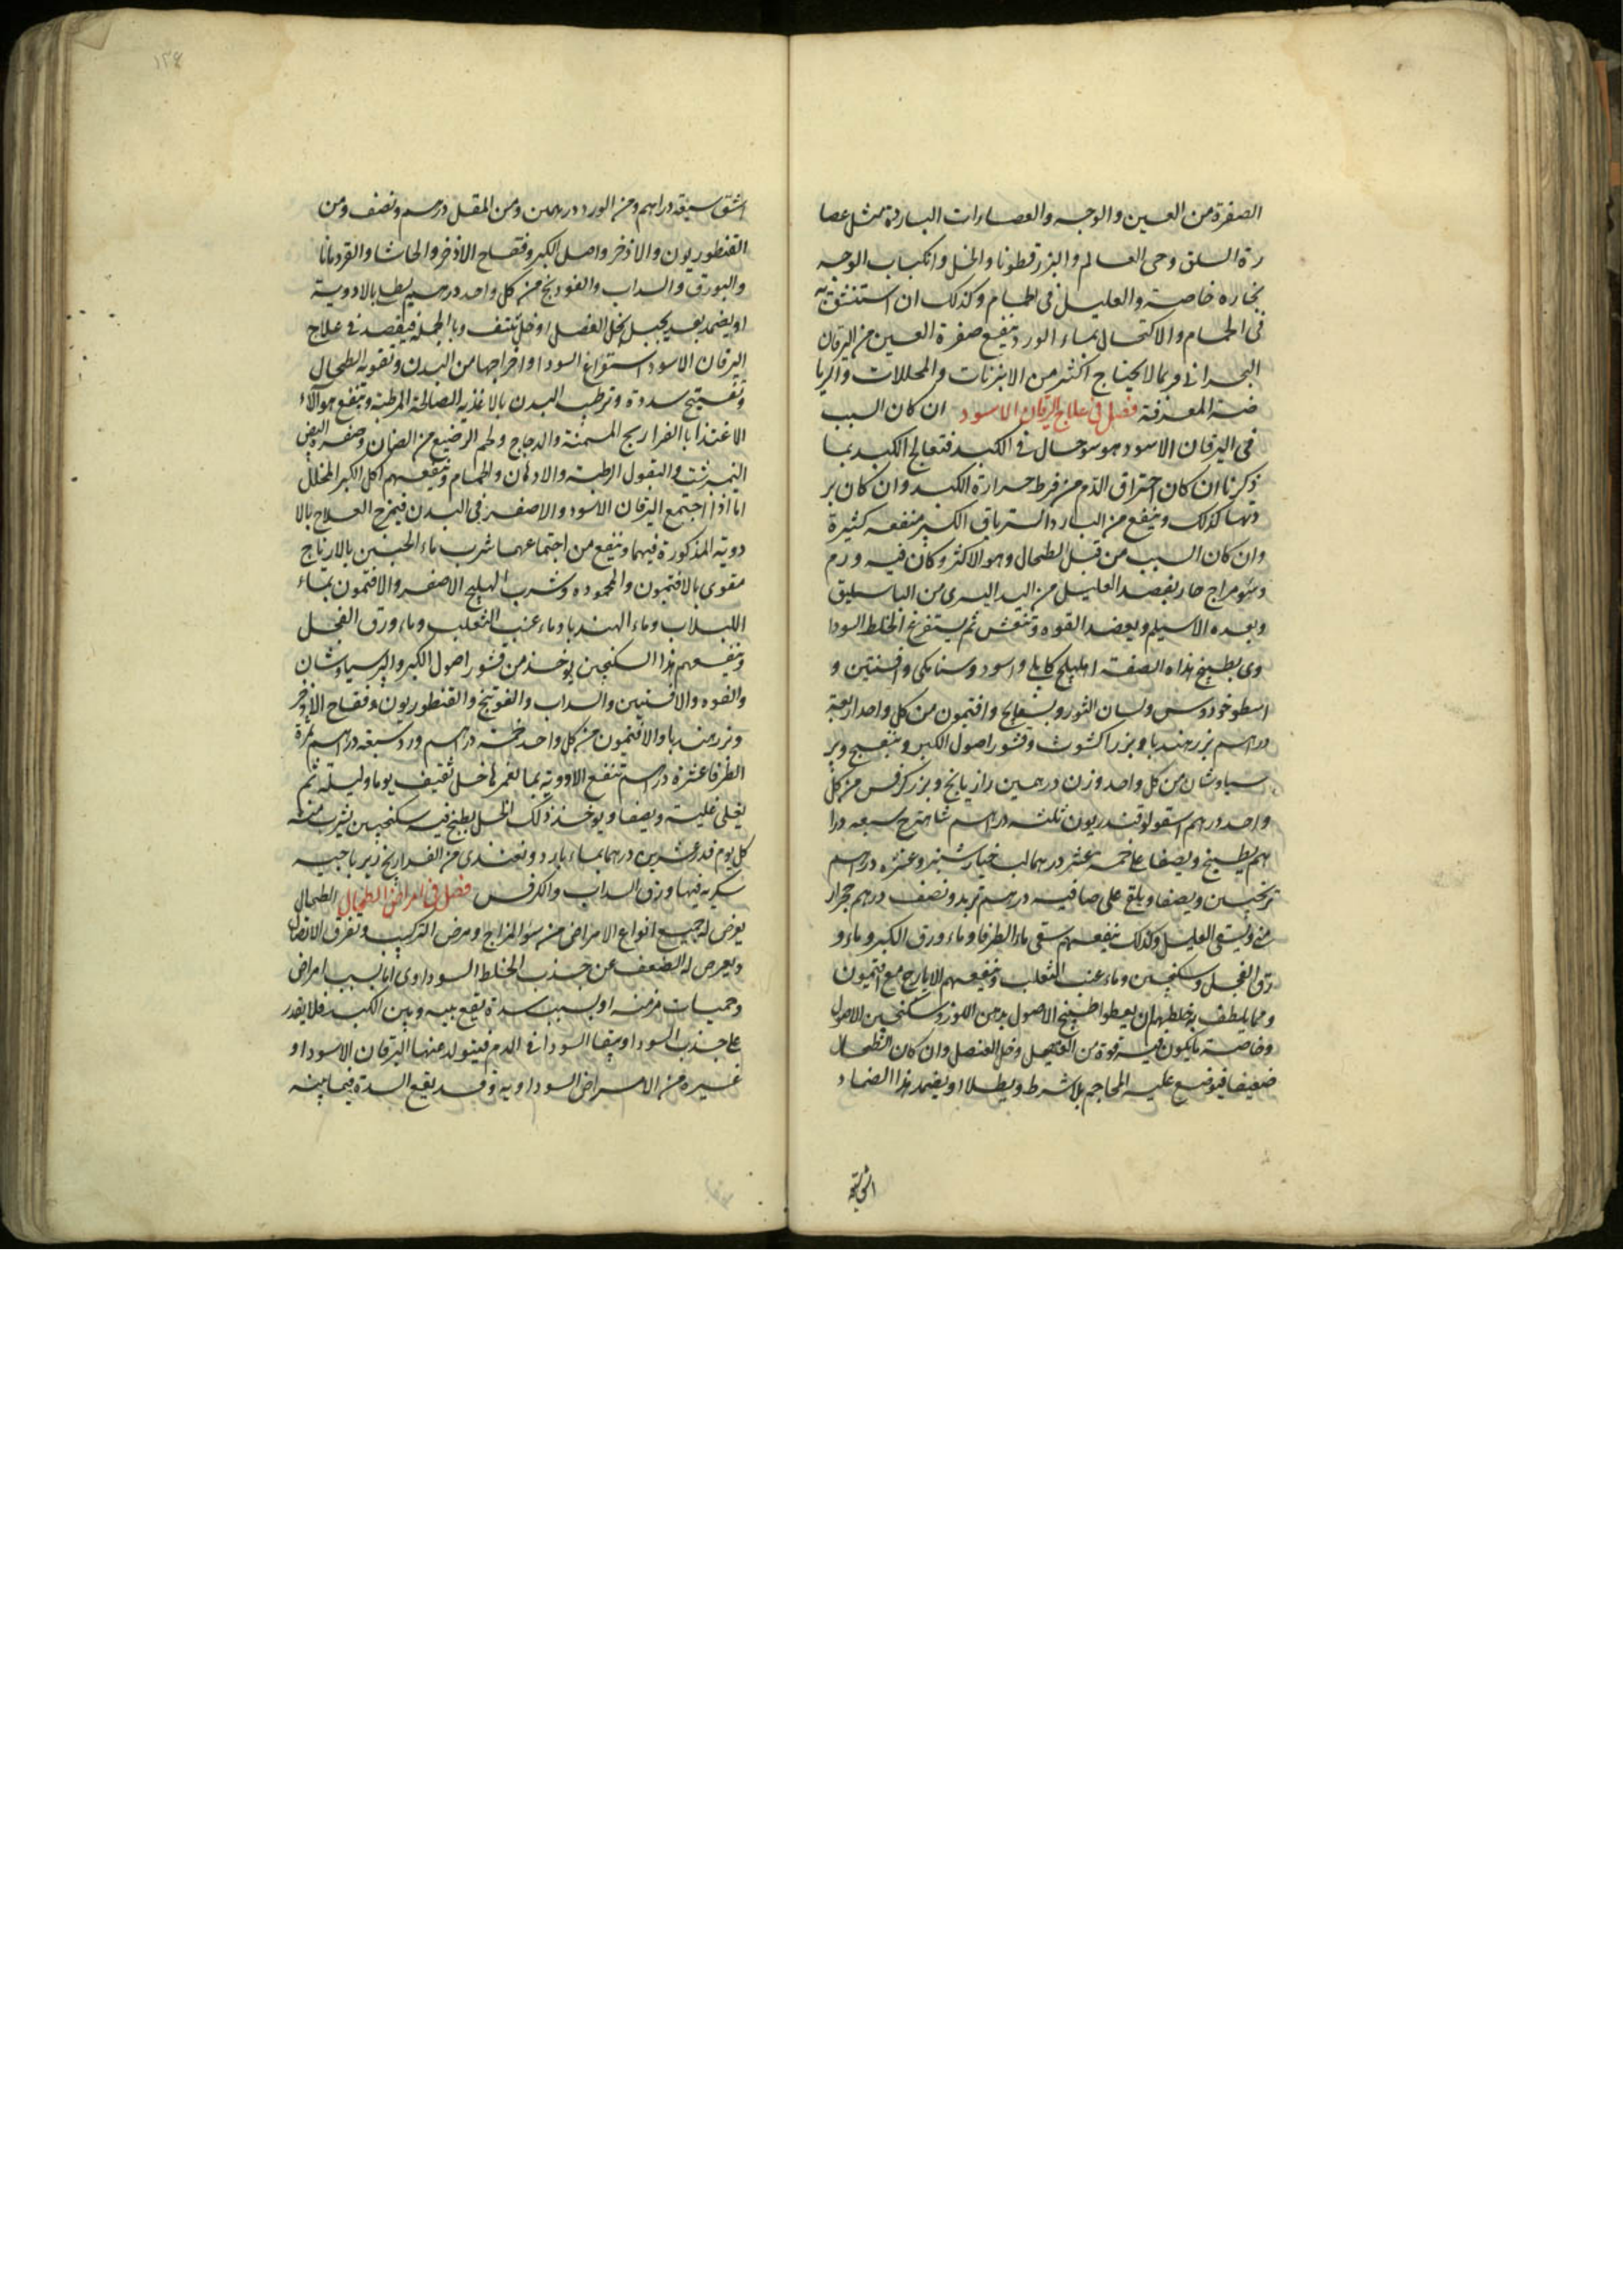 الصفرة من العين والوجه والعصارات الباردة مثل عصا
رة السلق وحى العالم والبزرقطونا والخل وانكباب الوجه
بخاره خاصة والعليل فى الحمام وكذلك ان استنشق به
فى الحمام والاكتحال بماء الورد ينفع صفرة العين من اليرقان
البحرانى وربما لا يحتاج اكثر من الابزنات والمحللات والريا
ضة المعرقة فصل فى علاج اليرقان الاسود ان كان السبب
فى اليرقان الاسود هو سوحال فى الكبد فتعالج الكبد بما
ذكرنا ان كان احتراق الدم من فرط حرارة الكبد وان كان بر
دتها كذلك وينفع من البارد الترياق الكبير منفعه كثيرة
وان كان السبب من قبل الطحال وهو الاكثر وكان فيه ورم
وسومزاج حار يفصد العليل من اليد اليسرى من الباسليق
وبعده الاسيلم ويعضد القوه وتنعش ثم يستفرغ الخلط السودا
وى بطبيخ هذاه الصفة اهليلج كابلى واسود وسنامكى وافسنتين و
اسطوخودوس ولسان الثور وبسفايج وافتيمون من كل واحد اربعة
دراهم بزر هندبا وبزر اكشوث وقشور اصول الكبر وبنفسج وبر
سياوشان من كل واحد وزن درهمين رازيانج وبزر كرفس من كل
واحد درهم اسقولوقندريون ثلثه دراهم شاهترج سبعه درا
هم يطبخ ويصفا على خمسة عشر درهما لب خيارشنبر وعشره دراهم
ترنجبين ويصفا ويلقى على صافيه درهم تربد ونصف درهم حجرار
منى ويسقى العليل وكذلك ينفعهم سقى ماء الطرفا وماء ورق الكبر وماء و
رق الفجل وسكنجبين وماء عنب الثعلب وينفعهم الايارج مع افتيمون
ومما يلطف به خلطهم ان يعطوا طبيخ الاصول بدهن اللوز وسكنجبين الاصول
وخاصة ما يكون فيه قوة من العنصل وخل العنصل وان كان الطحال
ضعيفا فيوضع عليه المحاجم بلا شرط ويطلا او يضمد بهذا الضماد
اشق سبعة
١٣٨
اشق سبعة دراهم ومن الورد درهمين ومن المقل درهم ونصف ومن
القنطوريون والاذخر واصل الكبر وفقاح الاذخر والحاشا والقردمانا
والبورق والسداب والفودنج من كل واحد درهم يطلى بالادوية
او يضمد بعد بخل العنصل او خل ثقيف وبالجمله فيقصد فى علاج
اليرقان الاسود استفراغ السودا واخراجها من البدن وتقوية الطحال
وتفتيح سددة وترطب البدن بالاغذية الصالحة المرطبة وينفع هوآلآء
الاغتذا بالفراريج المسمنة والدجاج ولحم الرضيع من الضان وصفرة البيض
النيمبرشت والبقول الرطبة والادهان والحمام وينفعهم اكل الكبر المخلل
اما اذا اجتمع اليرقان الاسود والاصفر فى البدن فيمزج العلاج بالا
دوية المذكورة فيهما وينفع من اجتماعهما شرب ماء الجبن بالايارج
مقوى بالافتيمون والمحموده وشرب الهليلج الاصفر والافتيمون بماء
اللبلاب وماء الهندبا وماء عنب الثعلب وماء ورق الفجل
وينفعهم هذا السكنجبين يوخذ من قشور اصول الكبر والبرسياوشان
والفوه والافسنتين والسداب والفوتنج والقنطوريون وفقاح الاذخر
وبزر هندبا والافتيمون من كل واحد خمسة دراهم ورد سبعه دراهم ثمرة
الطرفا عشرة دراهم تنقع الادويه بما يغمرها خل ثقيف يوما وليلة ثم
يغلى غلية ويصفا ويوخذ ذلك الخل يطبخ فيه سكنجبين يشرب منه
كل يوم قدر عشرين درهما بماء بارد ويغتذى من الفراريج زيرباجيه
سكريه فيها ورق السداب والكرفس فصل فى امراض الطحال الطحال
يعرض له جميع انواع الامراض من سؤ المزاج ومرض التركيب وتفرق الاتصال
ويعرض له الضعف عن جذب الخلط السوداوى اما بسبب امراض
وحميات مزمنه او بسبب سدة يقع بينه وبين الكبد فلا يقدر
على جذب السودا ويبقا السودا فى الدم فيتولد عنها اليرقان الاسود او
غيره من الامراض السوداويه وقد يقع السدة فيما بينه